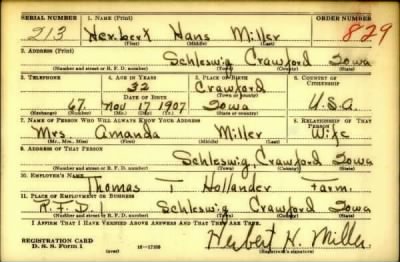 SERIAL NUMBER 1. NAME (Print) ORDER NUMBER
213 Herbert Hans Miller 829
(First) (Middle) (Last)
2. ADDRESS (Print)
Schleswig Crawford Iowa
(Number and street or R. F. D. number) (Town) (County) (State)
3. TELEPHONE 4. AGE IN YEARS 5. PLACE OF BIRTH 6. COUNTRY OF CITIZENSHIP
32 Crawford
DATE OF BIRTH (Town or county)
67. Nov 17 1907 Iowa U.S.A
(Exchange) (Number) (Mo.) (Day) (Yr.) (State or country)
7. NAME OF PERSON WHO WILL ALWAYS KNOW YOUR ADDRESS 8. RELATIONSHIP OF THAT PERSON
Mrs Amanda Miller Wife
(Mr., Mrs., Miss) (First) (Middle) (Last)
9. ADDRESS OF THAT PERSON
Schleswig, Crawford Iowa
(Number and street or R. F. D. number) (Town) (County) (State)
10. EMPLOYER'S NAME
Thomas T Hollander Farm.
11. PLACE OF EMPLOYMENT OR BUSINESS
R.F.D. 1 Schleswig Crawford Iowa
(Number and street or R. F. D. number) (Town) (County) (State)
I AFFIRM THAT I HAVE VERIFIED ABOVE ANSWERS AND THAT THEY ARE TRUE.
REGISTRATION CARD
D. S. S. Form 1 (over) Herbert H. Miller
(Registrant's signature)